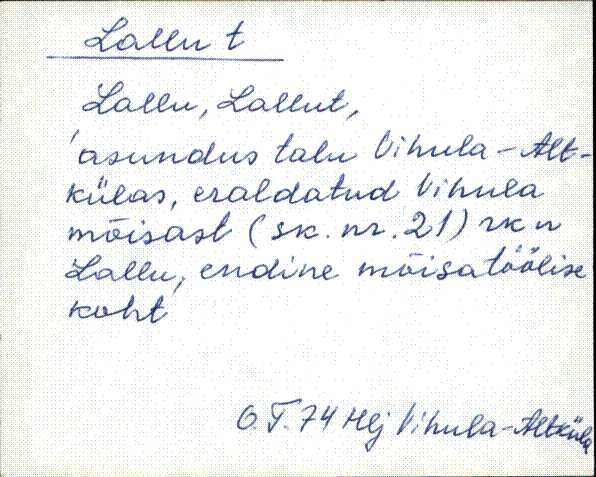 Lallu t
Lallu, Lallut,
asundus talu Vihula-Alt-
külas, eraldatud Vihula
mõisast (sk. nr. 21) rk n
Lallu, endine mõisatöölise
koht
O. T. 74 Hlj Vihula-Altküla